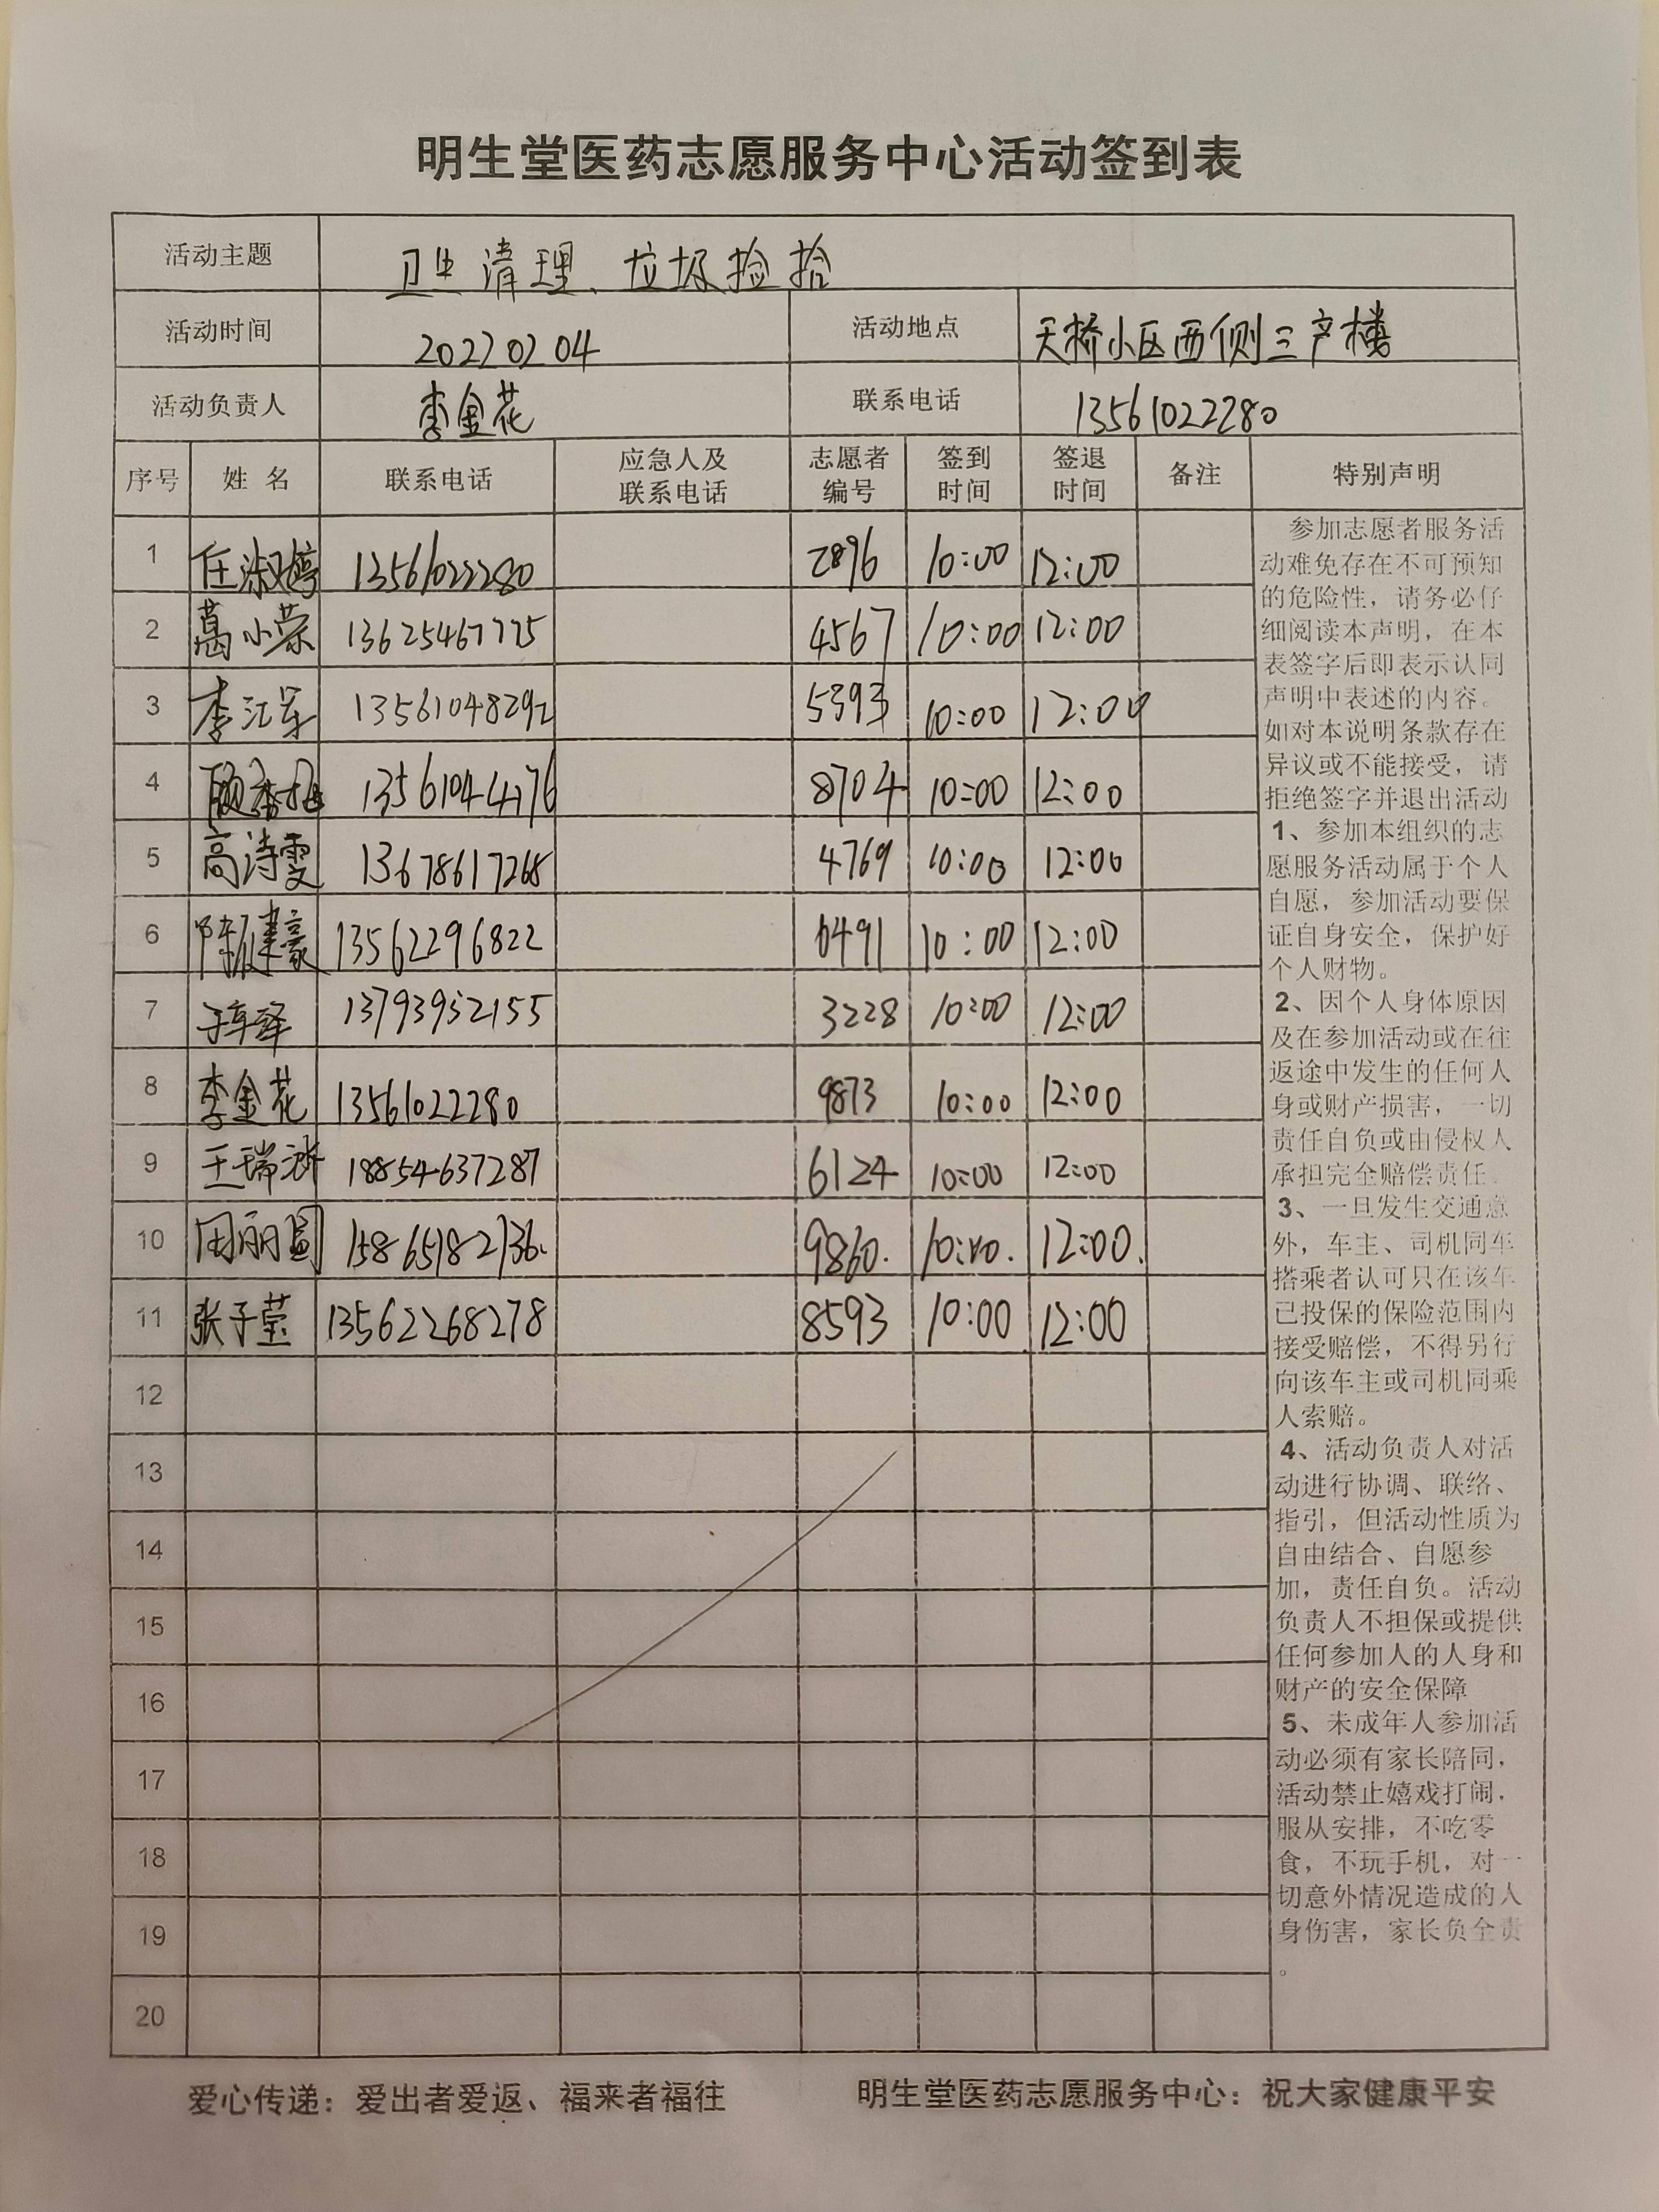 明生堂医药志愿服务中心活动签到表
活动主题 卫生清理、垃圾捡拾
活动时间 20220204 活动地点 天桥小区西侧三产楼
活动负责人 李金花 联系电话 13561022280
序号 姓名 联系电话 应急人及联系电话 志愿者编号 签到时间 签退时间 备注 特别声明
1 任淑婷 13561022280 2896 10:00 12:00
2 葛小荣 13625467775 4567 10:00 12:00
3 李江军 13561048292 5393 10:00 12:00
4 13561044176 8704 10:00 12:00
5 高诗雯 13678617268 4769 10:00 12:00
6 陈健豪 13562296822 6491 10:00 12:00
7 13793952155 3228 10:00 12:00
8 李金花 13561022280 9873 10:00 12:00
9 王瑞 18854637287 6124 10:00 12:00
10 田丽圆 15865182136. 9860. 10:00. 12:00.
11 张子莹 13562268278 8593 10:00 12:00
12
13
14
15
16
17
18
19
20
参加志愿者服务活
动难免存在不可预知
的危险性，请务必仔
细阅读本声明，在本
表签字后即表示认同
声明中表述的内容。
如对本说明条款存在
异议或不能接受，请
拒绝签字并退出活动
1、参加本组织的志
愿服务活动属于个人
自愿，参加活动要保
证自身安全，保护好
个人财物。
2、因个人身体原因
及在参加活动或在往
返途中发生的任何人
身或财产损害，一切
责任自负或由侵权人
承担完全赔偿责任。
3、一旦发生交通意
外，车主、司机同车
搭乘者认可只在该车
已投保的保险范围内
接受赔偿，不得另行
向该车主或司机同乘
人索赔。
4、活动负责人对活
动进行协调、联络、
指引，但活动性质为
自由结合、自愿参
加，责任自负。活动
负责人不担保或提供
任何参加人的人身和
财产的安全保障
5、未成年人参加活
动必须有家长陪同，
活动禁止嬉戏打闹，
服从安排，不吃零
食，不玩手机，对一
切意外情况造成的人
身伤害，家长负全责
。
爱心传递：爱出者爱返、福来者福往 明生堂医药志愿服务中心：祝大家健康平安